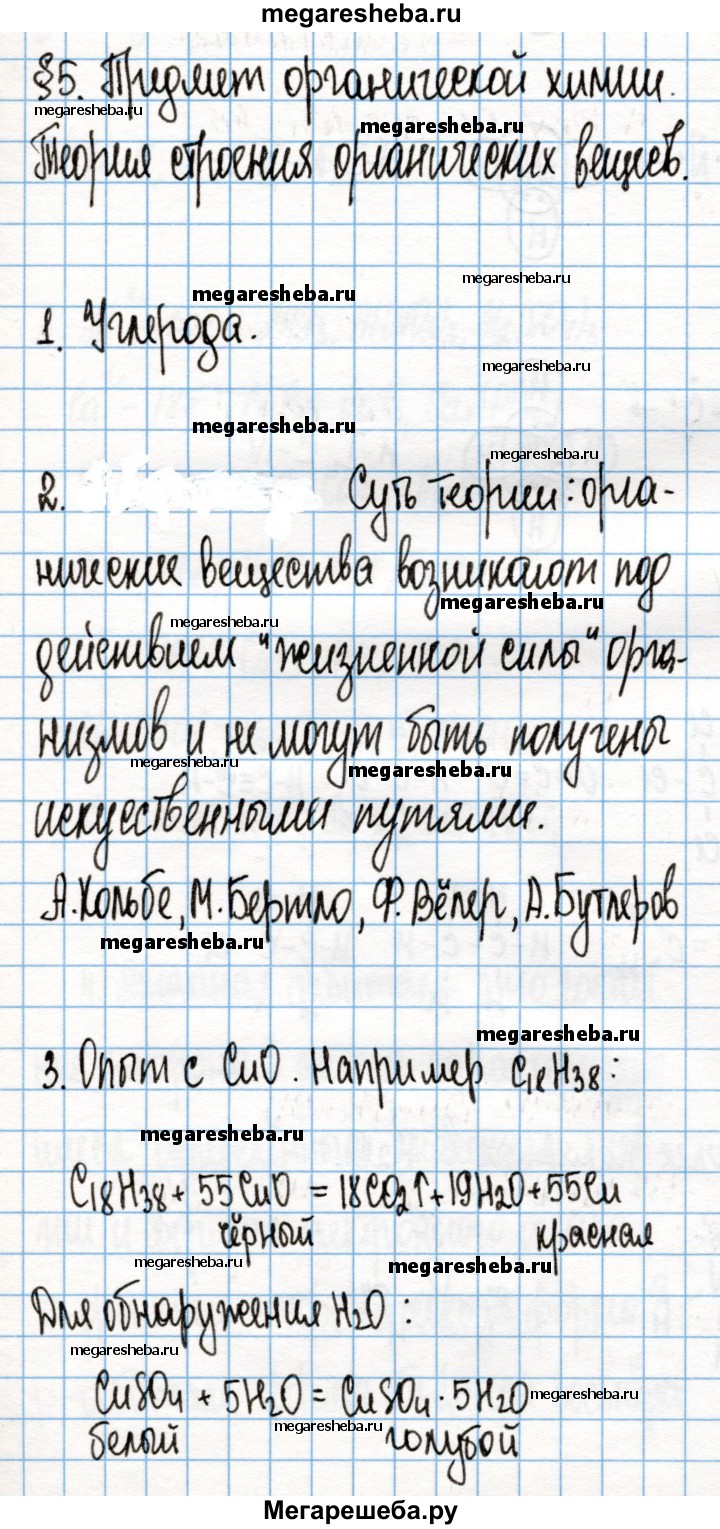 megaresheba.ru
§5. Предмет органической химии.
megaresheba.ru
megaresheba.ru
Теория строения органических веществ.
megaresheba.ru
megaresheba.ru
1. Углерода.
megaresheba.ru
megaresheba.ru
megaresheba.ru
2. Суть теории: орга-
нические вещества возникают под
megaresheba.ru
megaresheba.ru
действием "жизненной силы" орга-
низмов и не могут быть получены
megaresheba.ru
megaresheba.ru
искуственными путями.
А. Кольбе, М. Бертло, Ф. Вёлер, А. Бутлеров
megaresheba.ru
megaresheba.ru
3. Опыт с CuO. Например C₁₈H₃₈:
megaresheba.ru
C₁₈H₃₈ + 55CuO = 18CO₂↑ + 19H₂O + 55Cu
чёрный красная
megaresheba.ru
megaresheba.ru
Для обнаружения H₂O:
megaresheba.ru
CuSO₄ + 5H₂O = CuSO₄ · 5H₂O
megaresheba.ru
megaresheba.ru
белый голубой
Мегарешеба.ру